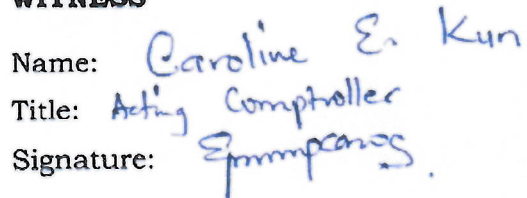 WITNESS
Name: Caroline E. Kun
Title: Acting Comptroller
Signature: